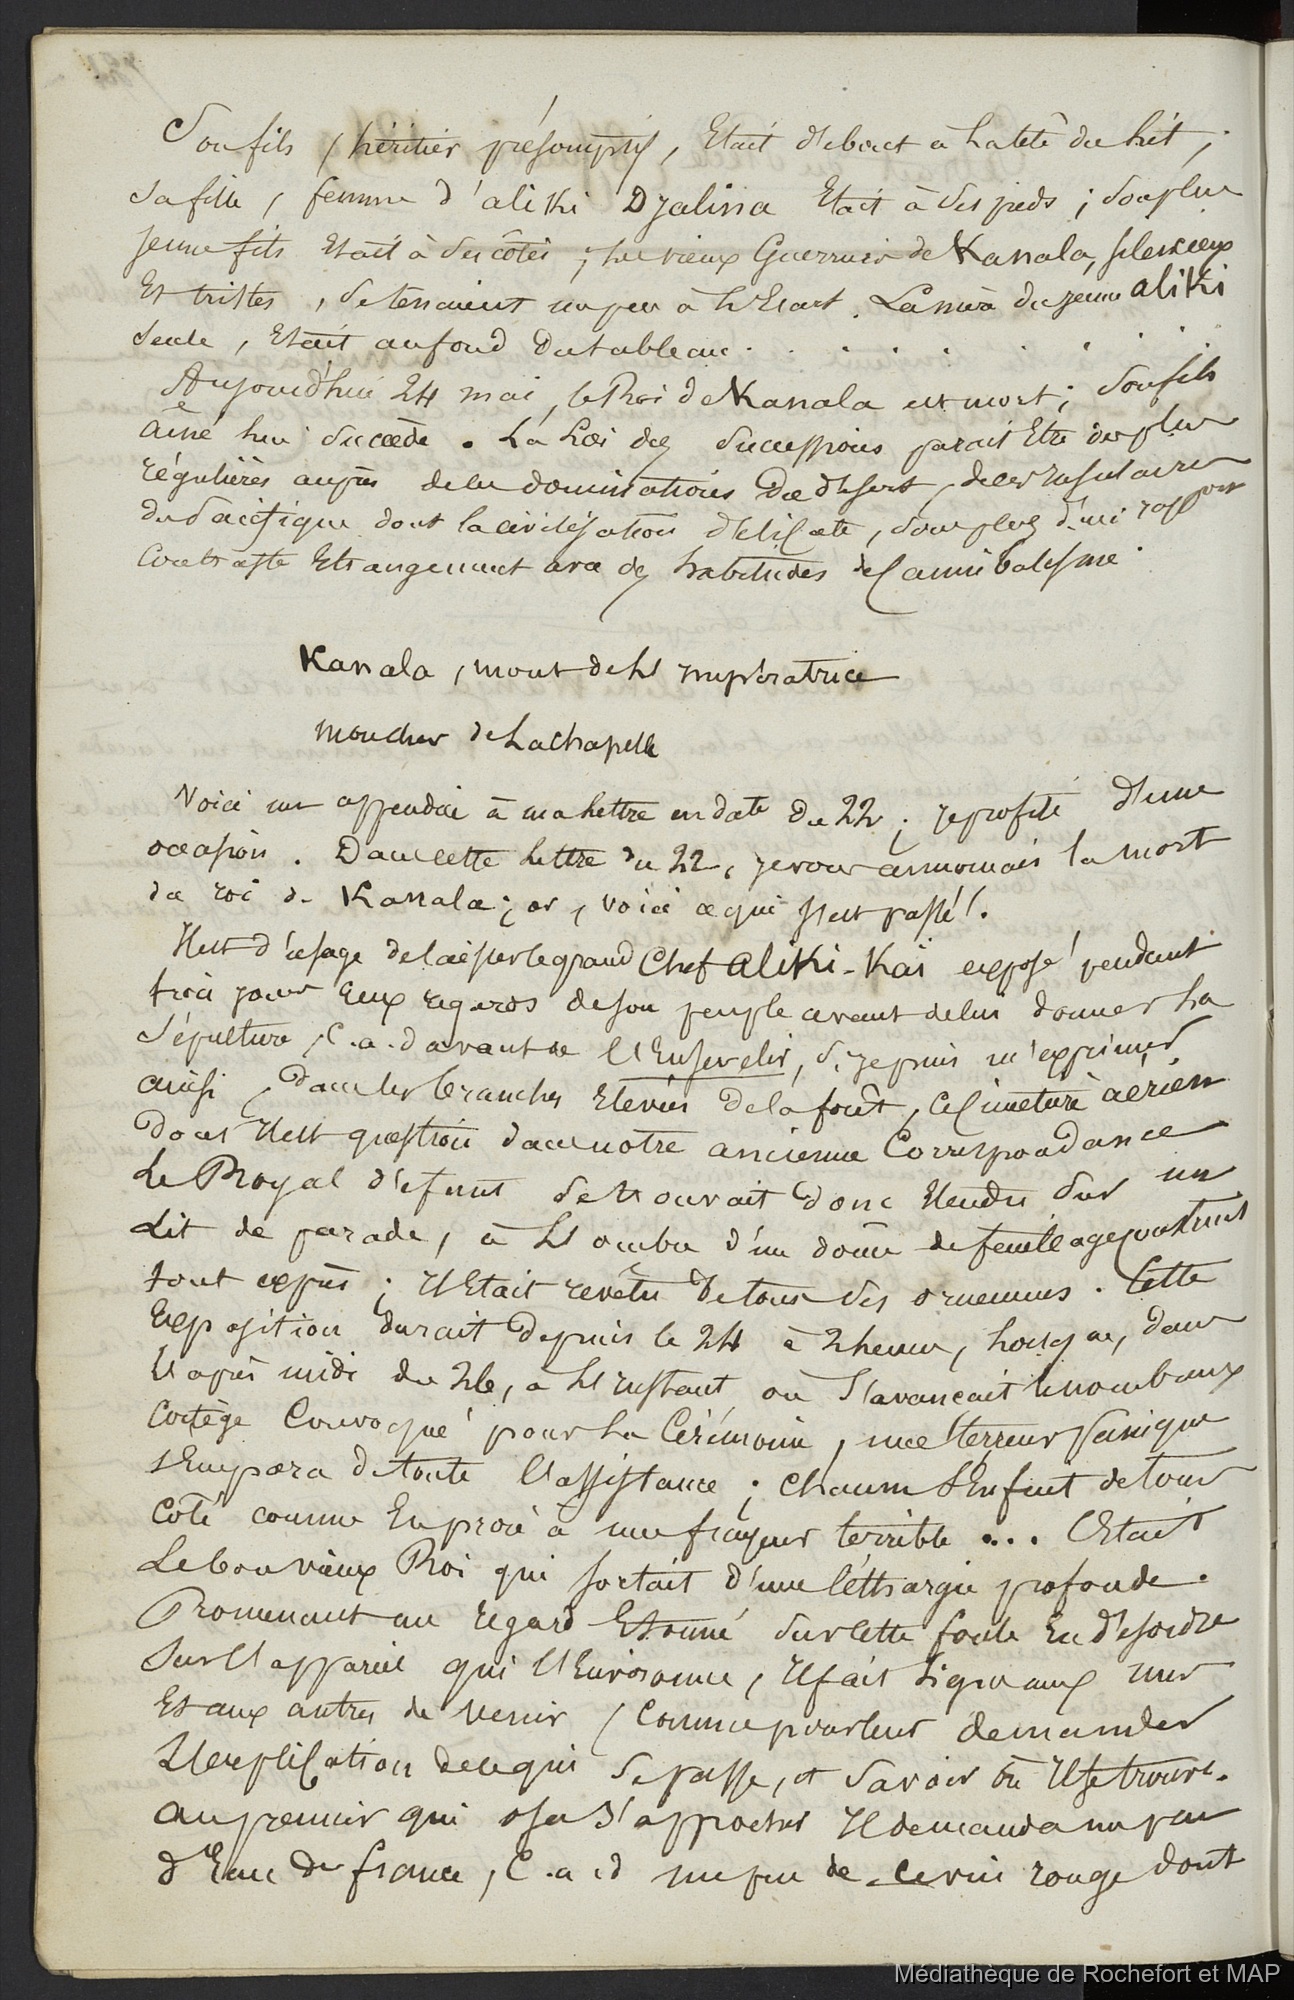 Son fils, héritier présomptif, Etait debout à la tête du lit ;
sa fille, femme d'aliki Dyalina Etait à ses pieds ; son plus
jeune fils Etait à ses côtés ; les vieux Guerriers de Kanala, silencieux
Et tristes, se tenaient un peu à l'Ecart. La mère du jeune aliki
seule, Etait au fond du tableau . . . . . . . .
Aujourd'hui 24 mai, le Roi de Kanala est mort ; son fils
aîné lui succède. La Loi des successions parait Etre des plus
régulières auprès de les dominations du désert, de ces insulaires
du Pacifique dont la civilisation délicate, sous plus d'un rapport
contraste Etrangement avec des habitudes de Cannibalisme.
Kanala, mont de l'Impératrice
Mon cher de Lachapelle
Voici un appendice à ma lettre en date du 22 ; je profite d'une
occasion. Dans cette lettre du 22, je vous annonçais la mort
du roi de Kanala ; or, voici ce qui s'est passé.
Il est d'usage de laisser le grand Chef Aliki-Kaï exposé pendant
trois jours aux regards de son peuple avant de lui donner la
sépulture, C.a.d avant de l'Ensevelir, si je puis m'exprimer
ainsi, dans les branches Elevées de la forêt, Cimetière aérien
dont il est question dans notre ancienne Correspondance
Le Royal défunt se trouvait donc Etendu sur un
Lit de parade, à l'ombre d'un dôme de feuillage construit
tout exprès ; il Etait revêtu de tous ses ornements. Cette
Exposition durait depuis le 24 à 2 heures, lorsque, dans
l'après midi du 26, à l'instant où s'avançait le nombreux
Cortège Convoqué pour la Cérémonie, une terreur panique
s'Empara de toute l'assistance ; chacun s'Enfuit de tous
Côté comme En proie à une frayeur terrible ... C'Etait
Le bon vieux Roi qui sortait d'une léthargie profonde.
Promenant un regard Etonné sur cette foule En désordre
sur l'appareil qui l'Environne, il fait signe aux uns
Et aux autres de venir, Comme pour leur demander
l'explication de ce qui se passe, et savoir où il se trouve.
Au premier qui osa s'approcher il demanda un peu
d'Eau de france, C.a.d un peu de ce vin rouge dont
Médiathèque de Rochefort et MAP